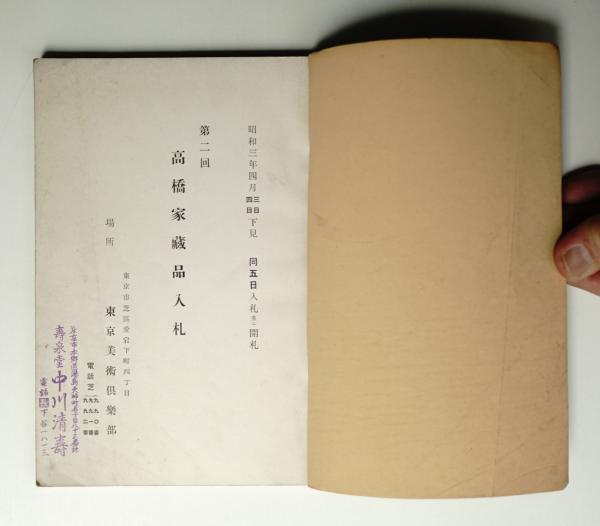 昭和三年四月三日四日下見 同五日入札並ニ開札
第二回
高橋家藏品入札
東京市芝區愛宕下町四丁目
場所 東京美術倶樂部
電話芝
九九〇番
九九一番
九九二番
壽泉堂 中川清壽
電話 下谷一八一三